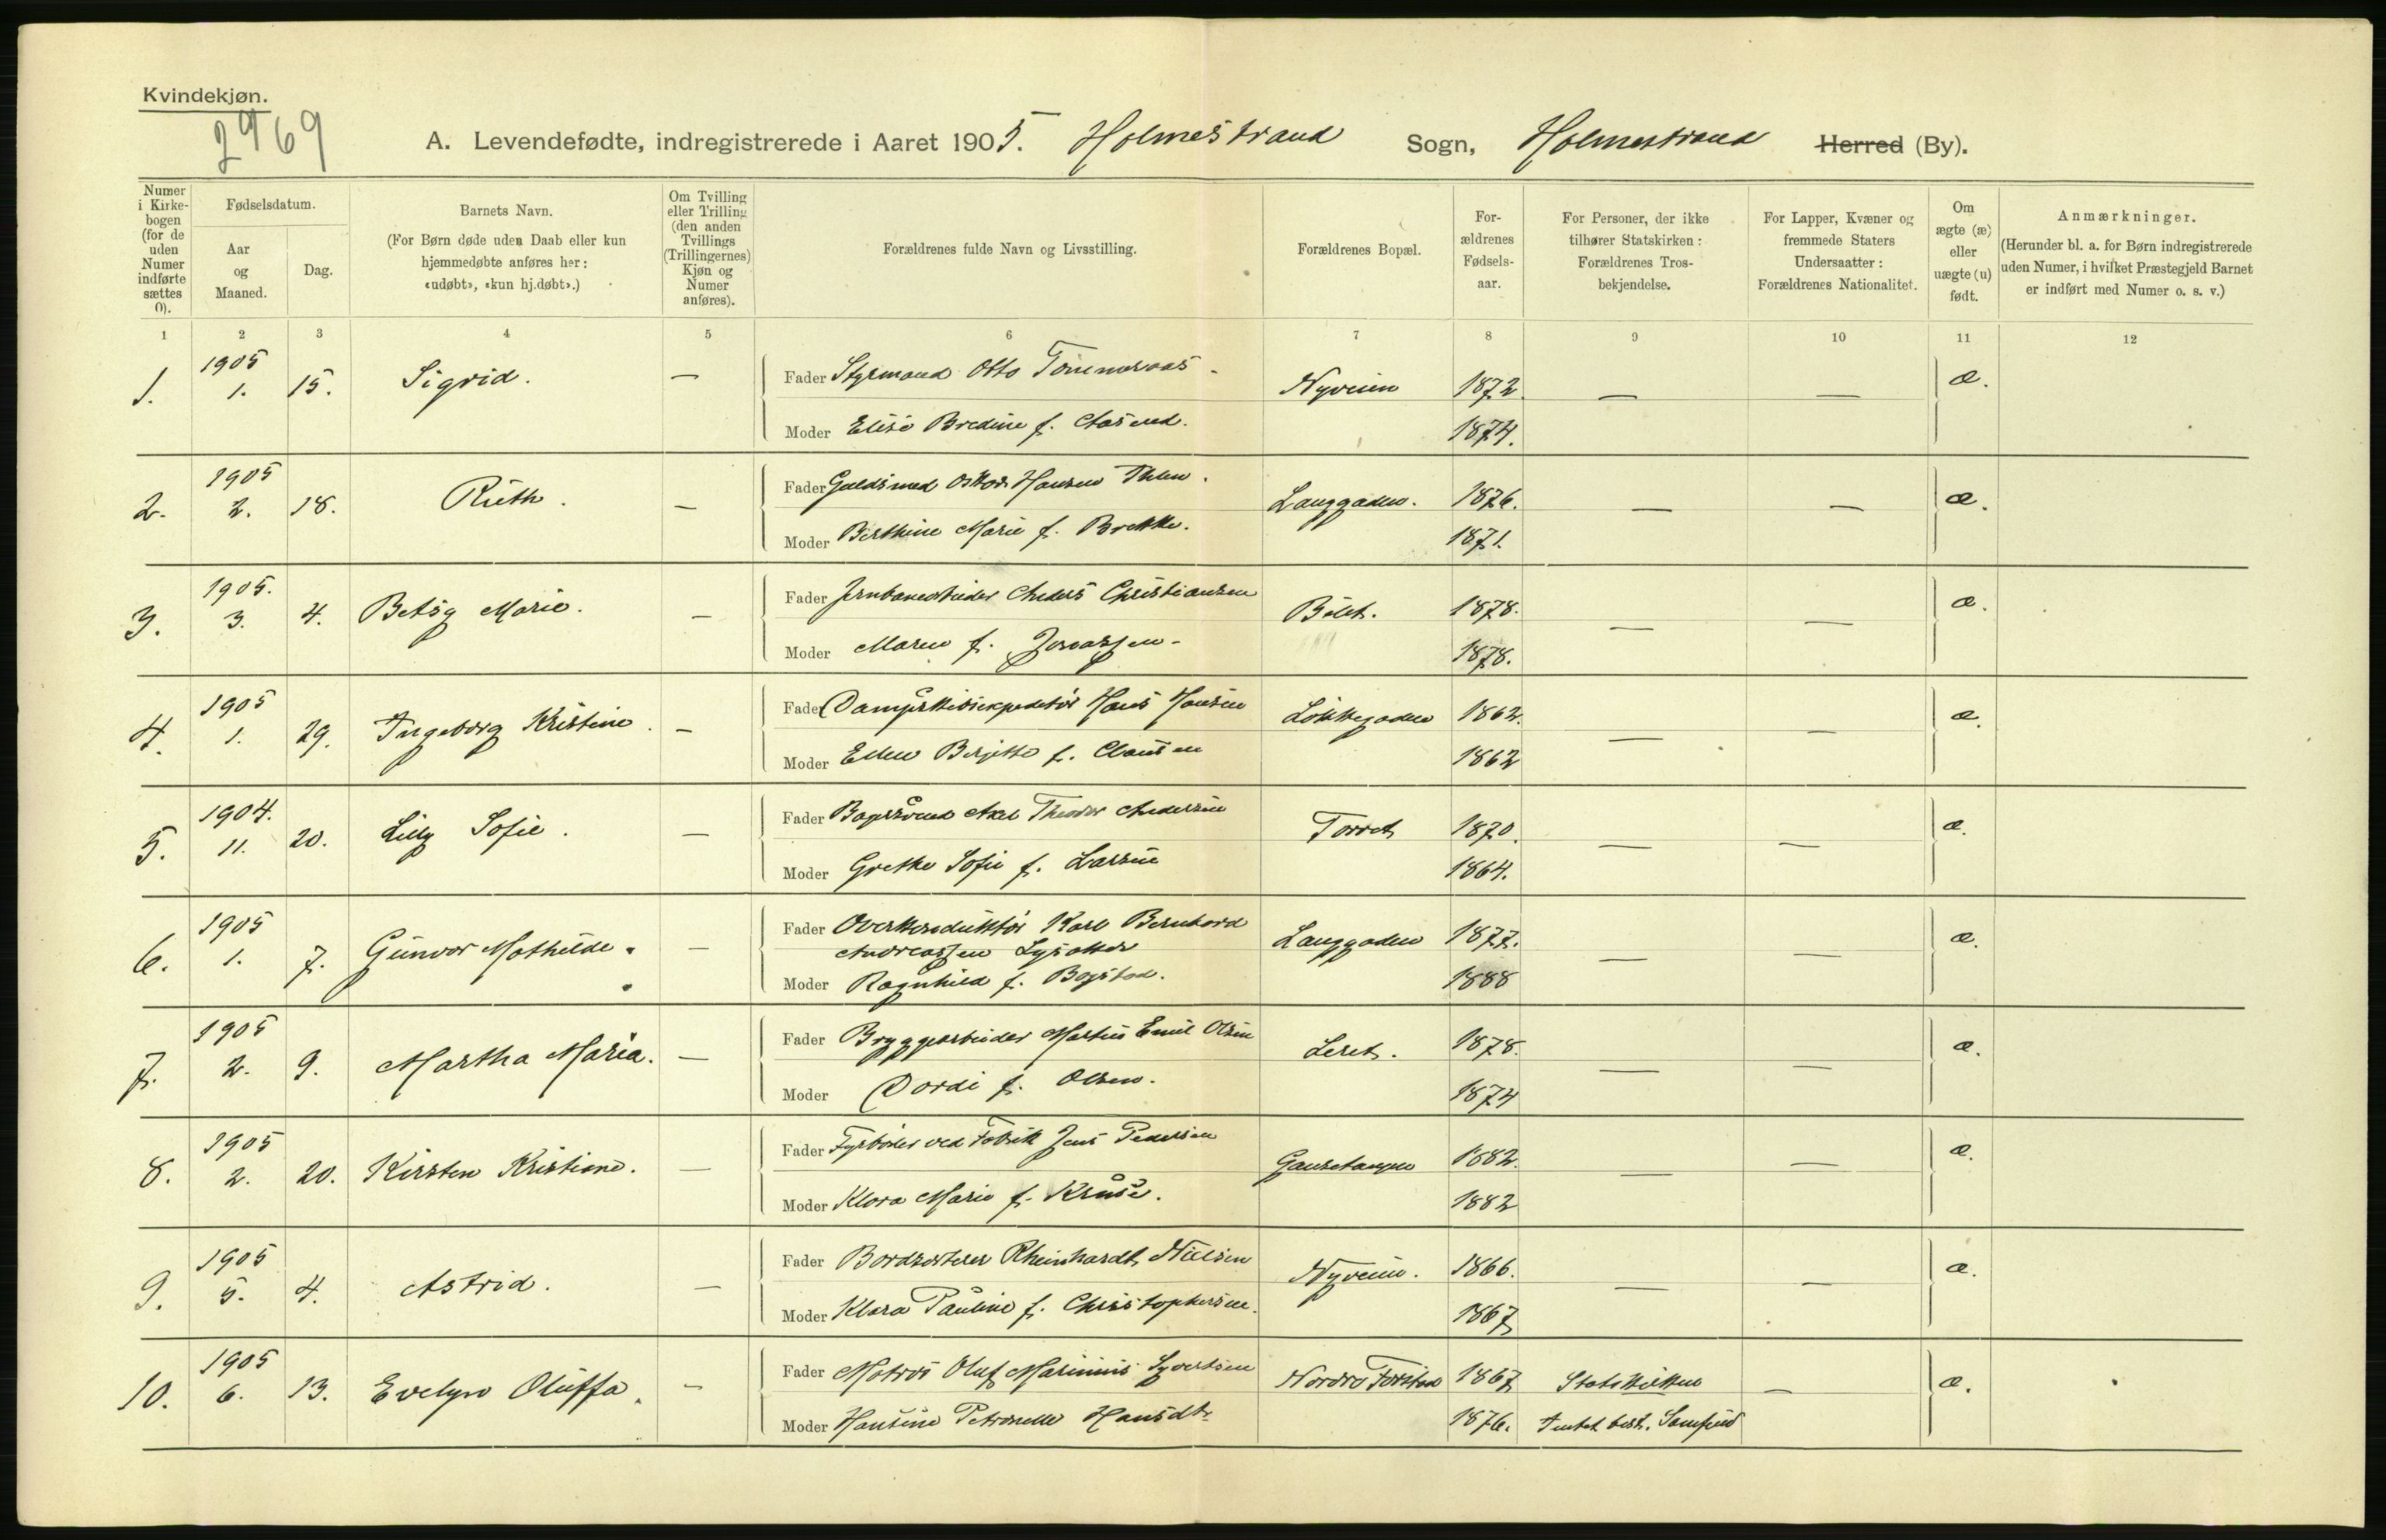 Kvindekjøn.
2969
A. Levendefødte, indregistrerede i Aaret 1905. Holmestrand Sogn, Holmestrand Herred (By).
Numer i Kirkebogen (for de uden Numer indførte sættes 0).
Fødselsdatum.
Aar og Maaned.
Dag.
Barnets Navn.
(For Børn døde uden Daab eller kun hjemmedøbte anføres her: «udøbt», «kun hj.døbt».)
Om Tvilling eller Trilling (den anden Tvillings (Trillingernes) Kjøn og Numer anføres).
Forældrenes fulde Navn og Livsstilling.
Forældrenes Bopæl.
Forældrenes Fødselsaar.
For Personer, der ikke tilhører Statskirken: Forældrenes Trosbekjendelse.
For Lapper, Kvæner og fremmede Staters Undersaatter: Forældrenes Nationalitet.
Om ægte (æ) eller uægte (u) født.
Anmærkninger.
(Herunder bl. a. for Børn indregistrerede uden Numer, i hvilket Præstegjeld Barnet er indført med Numer o. s. v.)
1 2 3 4 5 6 7 8 9 10 11 12
1. 1905 1. 15. Sigrid. — Fader Styrmand Otto Nyveien 1872. — — æ.
Moder Elise Bredine f. Aasend. 1874.
2. 1905 2. 18. Ruth. — Fader Guldsmed Oskar Hansen Langgaden. 1876. — — æ.
Moder Berthine Marie f. Brekke. 1871.
3. 1905. 3. 4. Betsy Marie. — Fader Jernbanearbeider Anders Christiansen 1878. — — æ.
Moder Maren f. 1878.
4. 1905 1. 29. Ingeborg Kristine. — Fader Dampskibsexpeditør Hans Hansen Løkkegaden 1862. — — æ.
Moder Ellen Bergitte f. Clausen 1862
5. 1904. 11. 20. Lilly Sofie. — Fader Bagersvend Axel Theodor Andersen Torvet 1870. — — æ.
Moder Grethe Sofie f. Larsen 1864.
6. 1905 1. 7. Gunvor Mathilde. — Fader Overkonduktør Karl Bernhard Langgaden 1877. — — æ.
Andreassen
Moder Ragnhild f. Bogstad. 1888
7. 1905 2. 9. Martha Maria. — Fader Bryggearbeider Martin Emil Olsen Leret. 1878. — — æ.
Moder Dordi f. Olsen. 1874
8. 1905 2. 20. Kirsten Kristiane. — Fader Fyrbøder ved Fabrik Jens Pedersen Gausetangen 1882. — — æ.
Moder Klara Marie f. Kruse. 1882
9. 1905 5. 4. Astrid. — Fader Bordsorterer Rheinhardt Nielsen Nyveien. 1866. — — æ.
Moder Klara Pauline f. Christophersen. 1867
10. 1905 6. 13. Evelyn Oluffa. — Fader Matros Oluf Marinius Syvertsen Nordre Forstad 1867 Statskirken — æ.
Moder Hansine Petronelle Hansdtr 1876. Intet best. Samfund